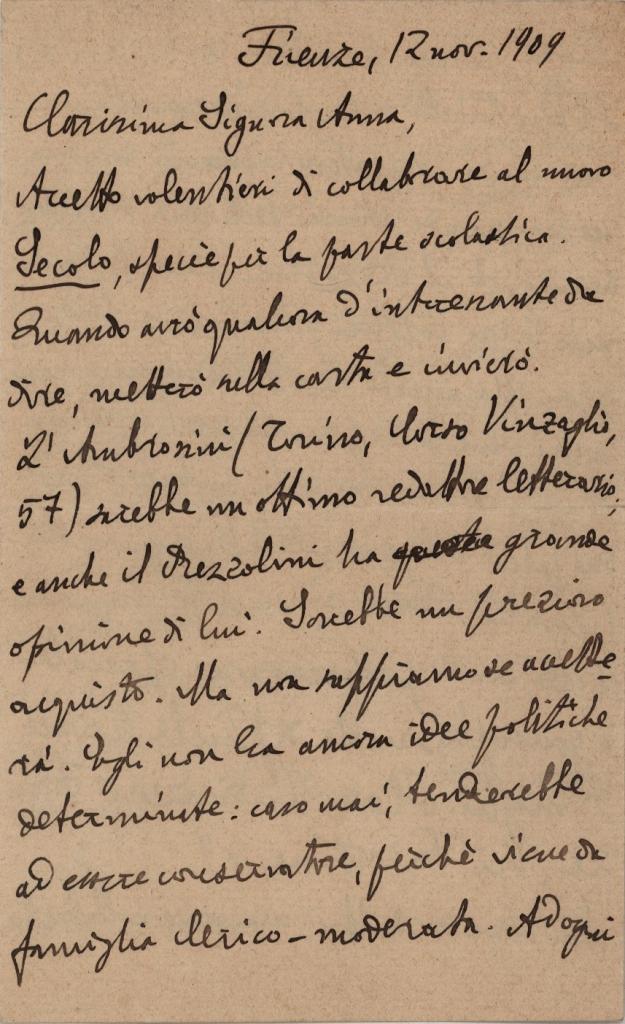 Firenze, 12 nov. 1909
Clarissima Signora Anna,
Accetto volentieri di collaborare al nuovo
Secolo, specie per la parte scolastica.
Quando avrò qualcosa d'interessante da
dire, metterò sulla carta e invierò.
L'Ambrosini (Torino, Corso Vinzaglio,
57) sarebbe un ottimo redattore letterario;
e anche il Prezzolini ha grande
opinione di lui. Sarebbe un prezioso
acquisto. Ma non sappiamo se accette
rà. Egli non ha ancora idee politiche
determinate: caso mai, tenderebbe
ad essere conservatore, perchè viene da
famiglia clerico-moderata. Ad ogni